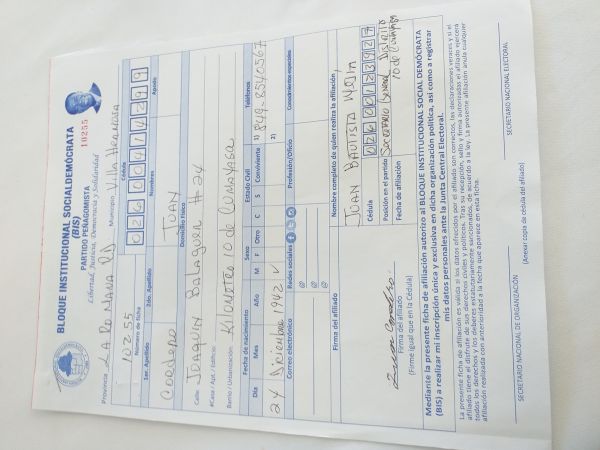 BLOQUE INSTITUCIONAL SOCIALDEMÓCRATA
(BIS)
PARTIDO PEÑAGOMISTA
Libertad, Justicia, Democracia y Solidaridad
10255
Provincia LA ROMANA RD Municipio Villa Hermosa
10255
Número de ficha
Cédula
02600414299
1er. Apellido 2do. Apellido Nombres Apodo
CORDERO JUAN
Domicilio Físico
Calle: JOAQUIN Balaguer #24
#Casa / Apt / Edificio:
Barrio / Urbanización: KILOMETRO 10 de CUMAYASA
Fecha de nacimiento Sexo Estado Civil Teléfonos
Día Mes Año M F Otro C S Conviviente 1) 849-8540567
24 Diciembre 1942 ✓ 2)
Correo electrónico Redes sociales Profesión/Oficio Conocimientos especiales
@
@
Firma del afiliado Nombre completo de quien realiza la afiliación
JUAN BAUTISTA MEJIA
Cédula 02600123927
Posición en el partido Secretario General Distrito
10 de Cumayasa
Fecha de afiliación
Firma del afiliado
(Firme igual que en la Cédula)
Mediante la presente ficha de afiliación autorizo al BLOQUE INSTITUCIONAL SOCIAL DEMÓCRATA
(BIS) a realizar mi inscripción única y exclusiva en dicha organización política, así como a registrar
mis datos personales ante la Junta Central Electoral.
La presente ficha de afiliación es válida si los datos ofrecidos por el afiliado son correctos, las declaraciones veraces y si el
afiliado tiene el disfrute de sus derechos civiles y políticos. Tras su recepción, sello y firma autorizadas el afiliado ejercerá
todos los derechos y los deberes estatutariamente sancionados, de acuerdo a la ley. La presente afiliación anula cualquier
afiliación realizada con anterioridad a la fecha que aparece en esta ficha.
SECRETARIO NACIONAL DE ORGANIZACIÓN
SECRETARIO NACIONAL ELECTORAL
(Anexar copia de cédula del afiliado)